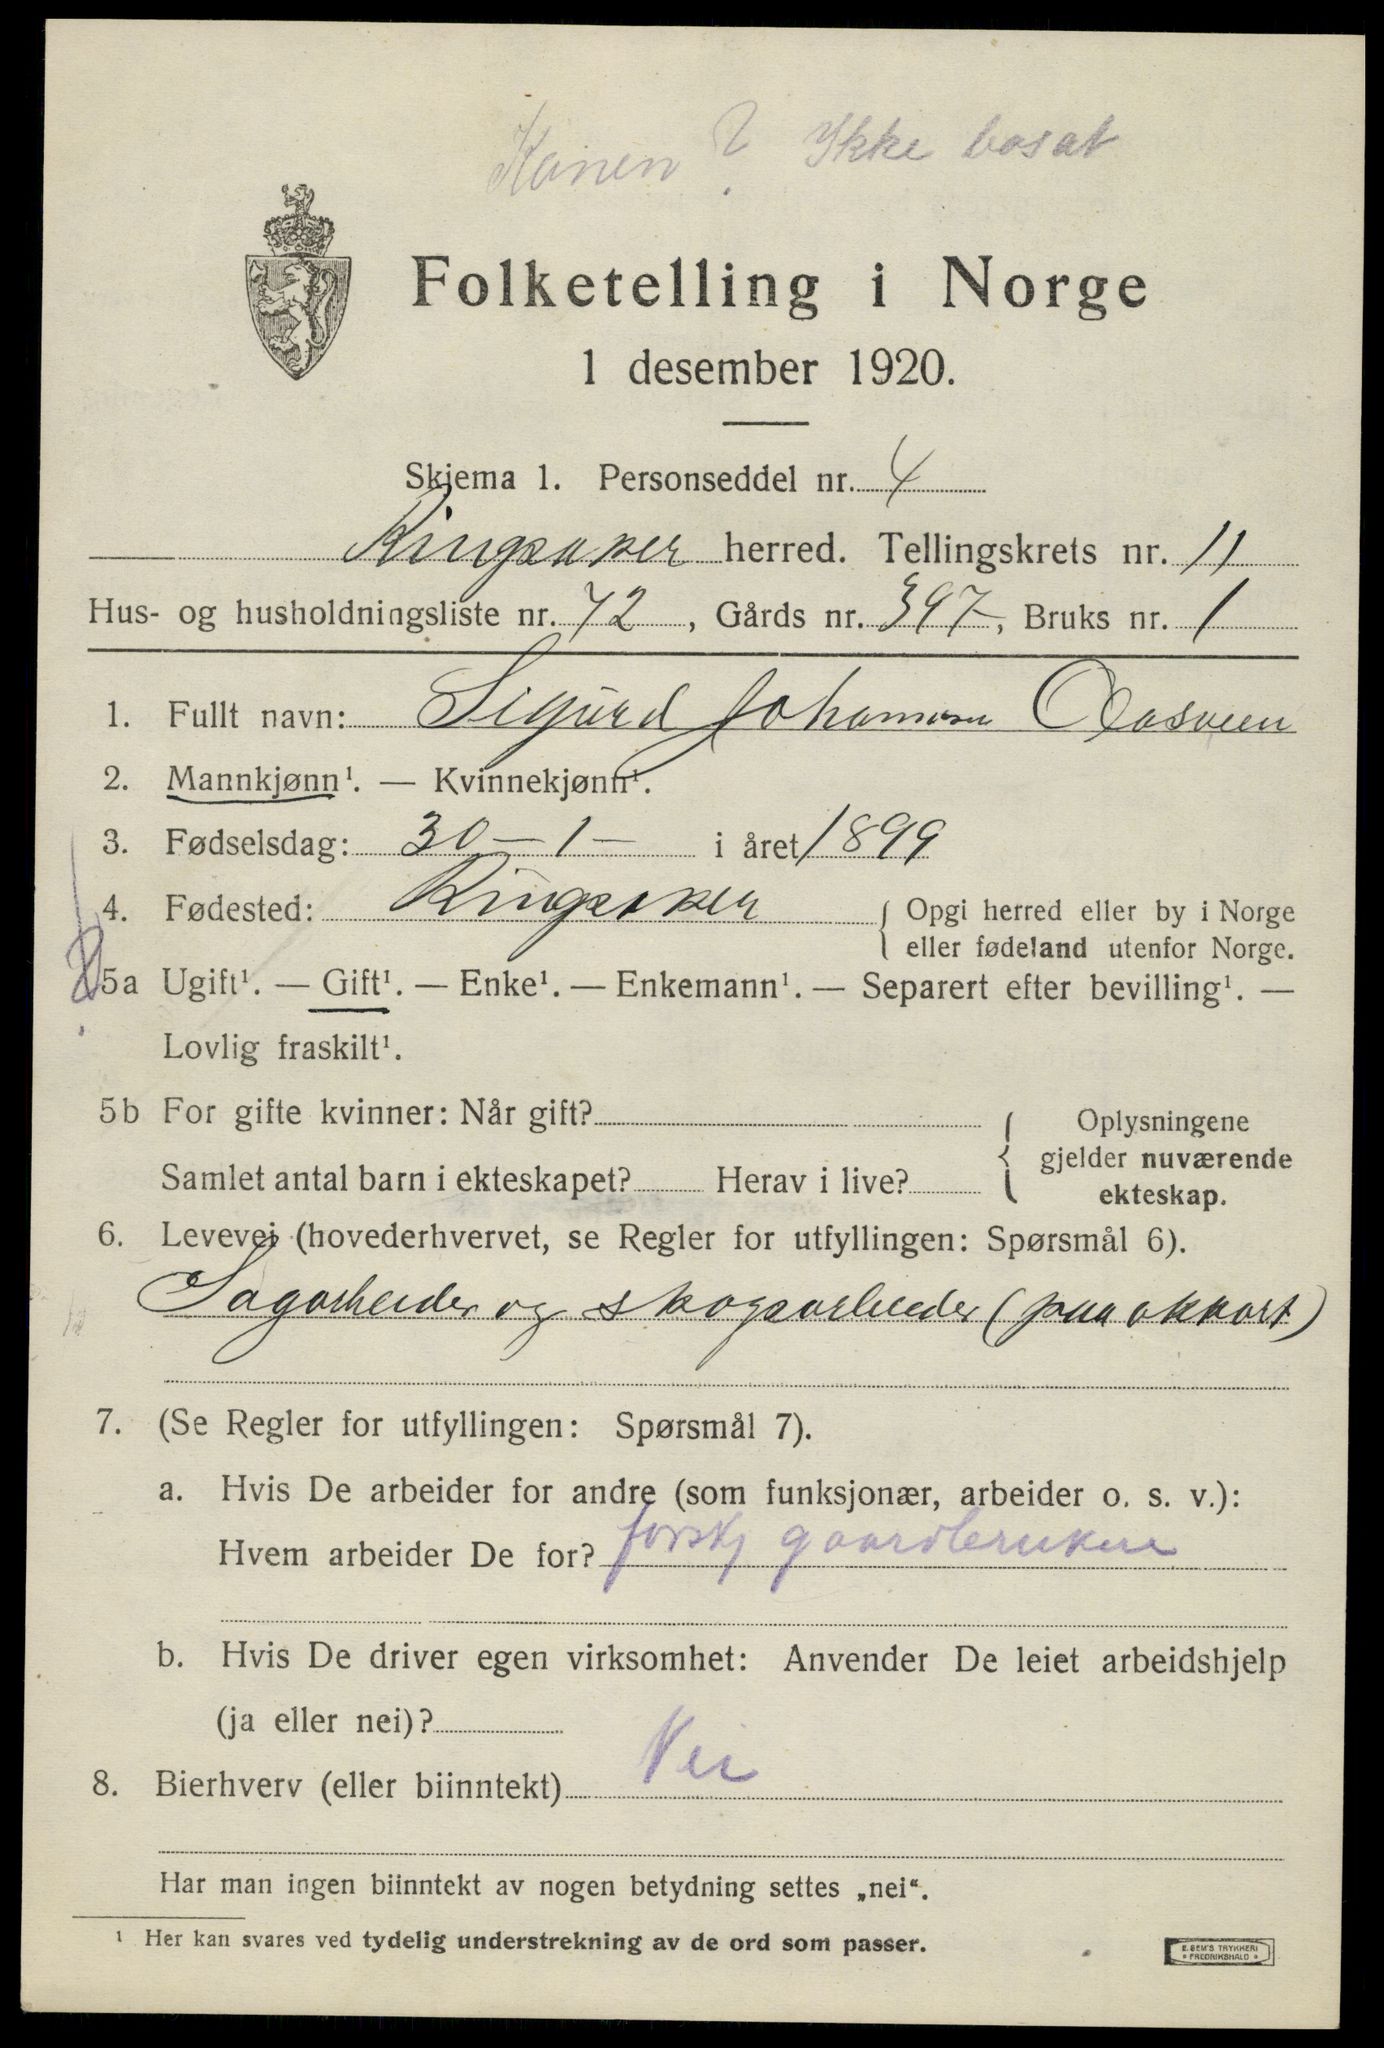 Konen? Ikke bosat
Folketelling i Norge
1 desember 1920.
Skjema 1. Personseddel nr. 4
Ringsaker herred. Tellingskrets nr. 11
Hus- og husholdningsliste nr. 72, Gårds nr. 397, Bruks nr. 1
1. Fullt navn: Sigurd Johansen Aasveen
2. Mannkjønn¹. — Kvinnekjønn¹.
3. Fødselsdag: 30 – 1 – i året 1899
4. Fødested: Ringsaker { Opgi herred eller by i Norge
eller fødeland utenfor Norge.
5a Ugift¹. — Gift¹. — Enke¹. — Enkemann¹. — Separert efter bevilling¹. —
Lovlig fraskilt¹.
5b For gifte kvinner: Når gift? { Oplysningene
gjelder nuværende
Samlet antal barn i ekteskapet? Herav i live? ekteskap.
6. Levevei (hovederhvervet, se Regler for utfyllingen: Spørsmål 6).
Sagarbeider og skogsarbeider (paa akkort)
7. (Se Regler for utfyllingen: Spørsmål 7).
a. Hvis De arbeider for andre (som funksjonær, arbeider o. s. v.):
Hvem arbeider De for? forskj gaardbrukere
b. Hvis De driver egen virksomhet: Anvender De leiet arbeidshjelp
(ja eller nei)?
8. Bierhverv (eller biinntekt) Nei
Har man ingen biinntekt av nogen betydning settes „nei“.
¹ Her kan svares ved tydelig understrekning av de ord som passer.
E. SEM'S TRYKKERI
FREDRIKSHALD